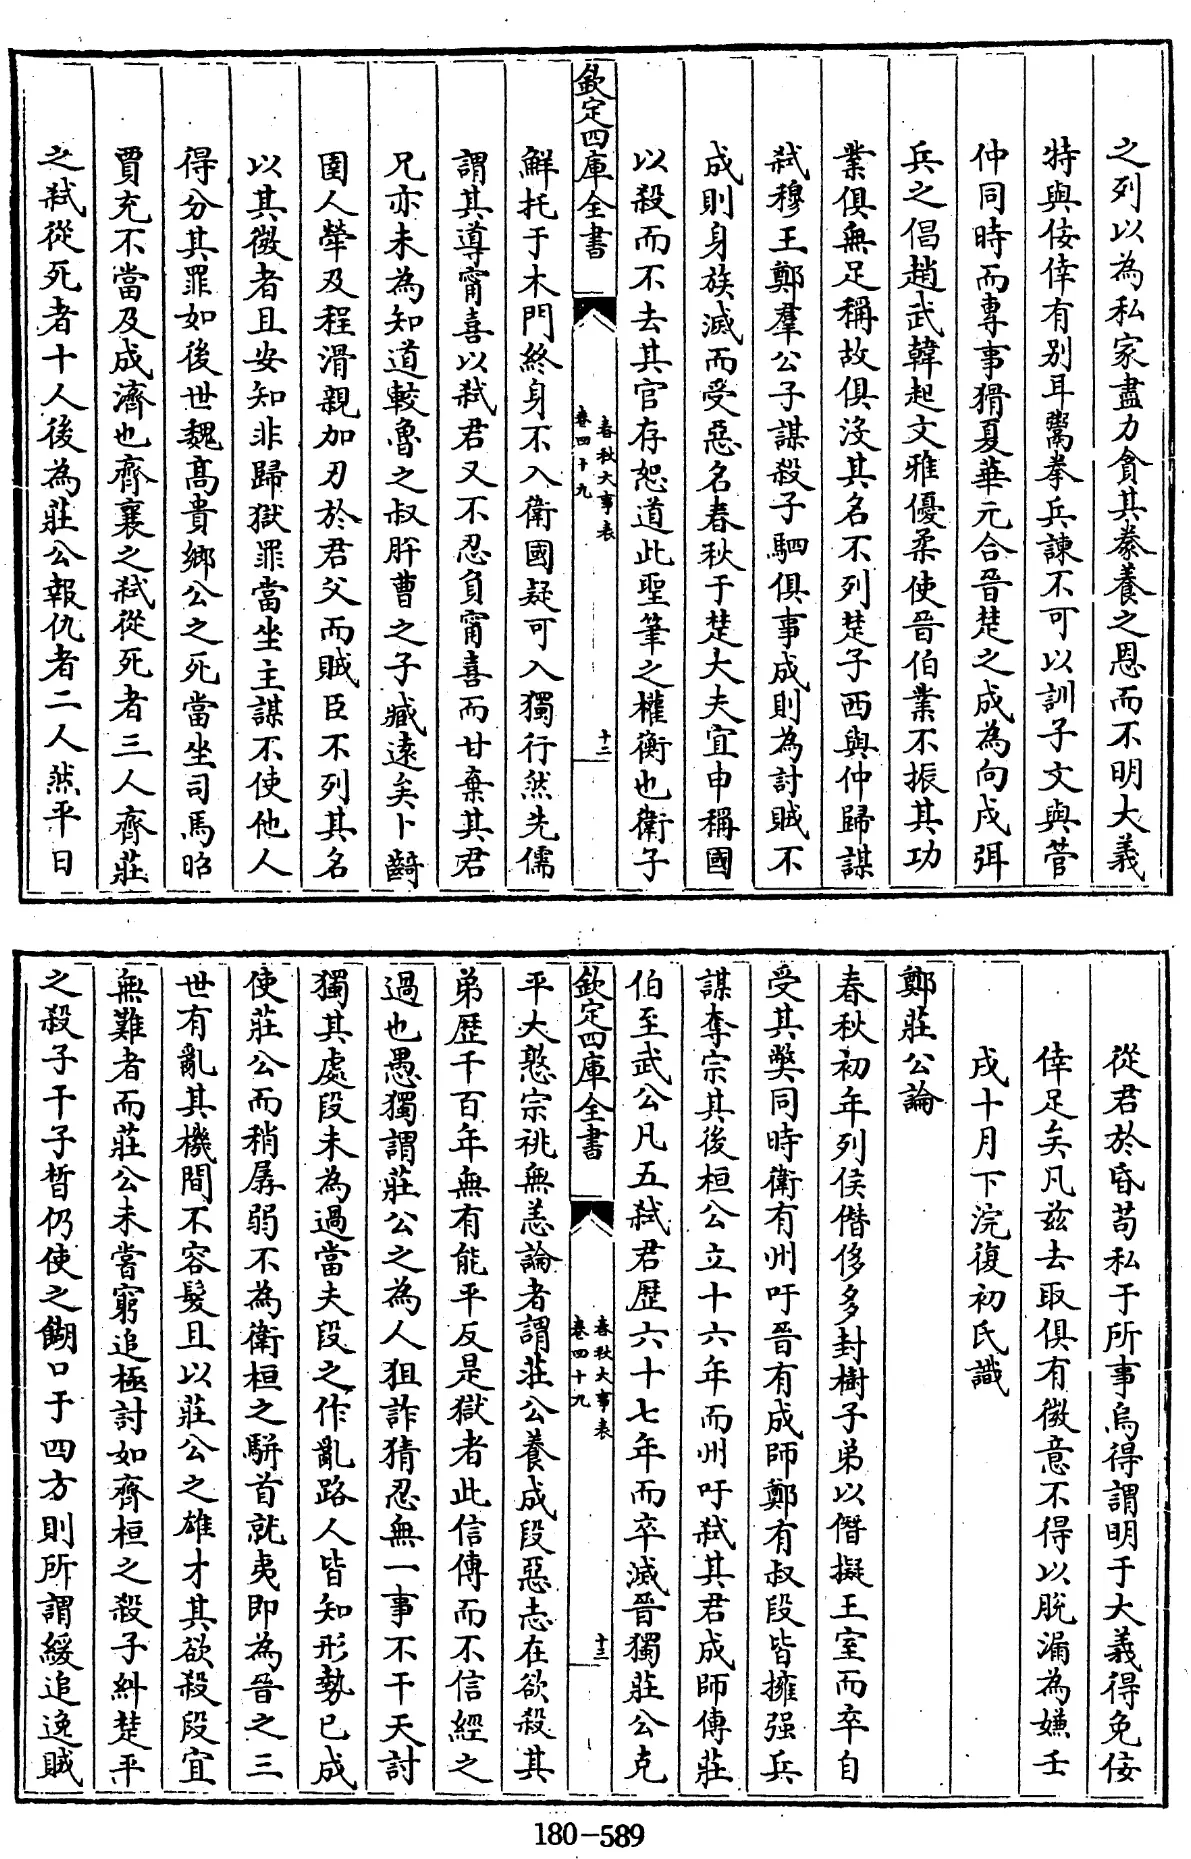 之列以為私家盡力貪其豢養之恩而不明大義
特與佞倖有别耳鬻拳兵諫不可以訓子文與管
仲同時而專事猾夏華元合晉楚之成為向戌弭
兵之倡趙武韓起文雅優柔使晉伯業不振其功
業俱無足稱故俱没其名不列楚子西與仲歸謀
弑穆王鄭羣公子謀殺子駟俱事成則為討賊不
成則身族滅而受惡名春秋于楚大夫宜申稱國
以殺而不去其官存恕道此聖筆之權衡也衛子
欽定四庫全書
春秋大事表
卷四十九
十二
鮮托于木門終身不入衛國疑可入獨行然先儒
謂其導甯喜以弑君又不忍負甯喜而甘棄其君
兄亦未為知道較魯之叔肸曹之子臧遠矣卜齮
圉人犖及程滑親加刃於君父而賊臣不列其名
以其微者且安知非歸獄罪當坐主謀不使他人
得分其罪如後世魏髙貴鄉公之死當坐司馬昭
賈充不當及成濟也齊襄之弑從死者三人齊莊
之弑從死者十人後為莊公報仇者二人然平日
從君於昏苟私于所事烏得謂明于大義得免佞
倖足矣凡兹去取俱有微意不得以脱漏為嫌壬
戌十月下浣復初氏識
鄭莊公論
春秋初年列侯僭侈多封樹子弟以僭擬王室而卒自
受其獘同時衛有州吁晉有成師鄭有叔段皆擁强兵
謀奪宗其後桓公立十六年而州吁弑其君成師傳莊
伯至武公凡五弑君歴六十七年而卒滅晉獨莊公克
欽定四庫全書
春秋大事表
卷四十九
十三
平大憝宗祧無恙論者謂莊公養成段惡志在欲殺其
弟歴千百年無有能平反是獄者此信傳而不信經之
過也愚獨謂莊公之為人狙詐猜忍無一事不干天討
獨其處段未為過當夫段之作亂路人皆知形勢已成
使莊公而稍孱弱不為衛桓之駢首就夷即為晉之三
世有亂其機間不容髮且以莊公之雄才其欲殺段宜
無難者而莊公未嘗窮追極討如齊桓之殺子糾楚平
之殺子干子晳仍使之餬口于四方則所謂緩追逸賊
180-589